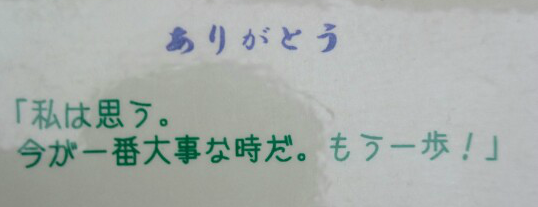 ありがとう
「私は思う。
今が一番大事な時だ。もう一歩!」